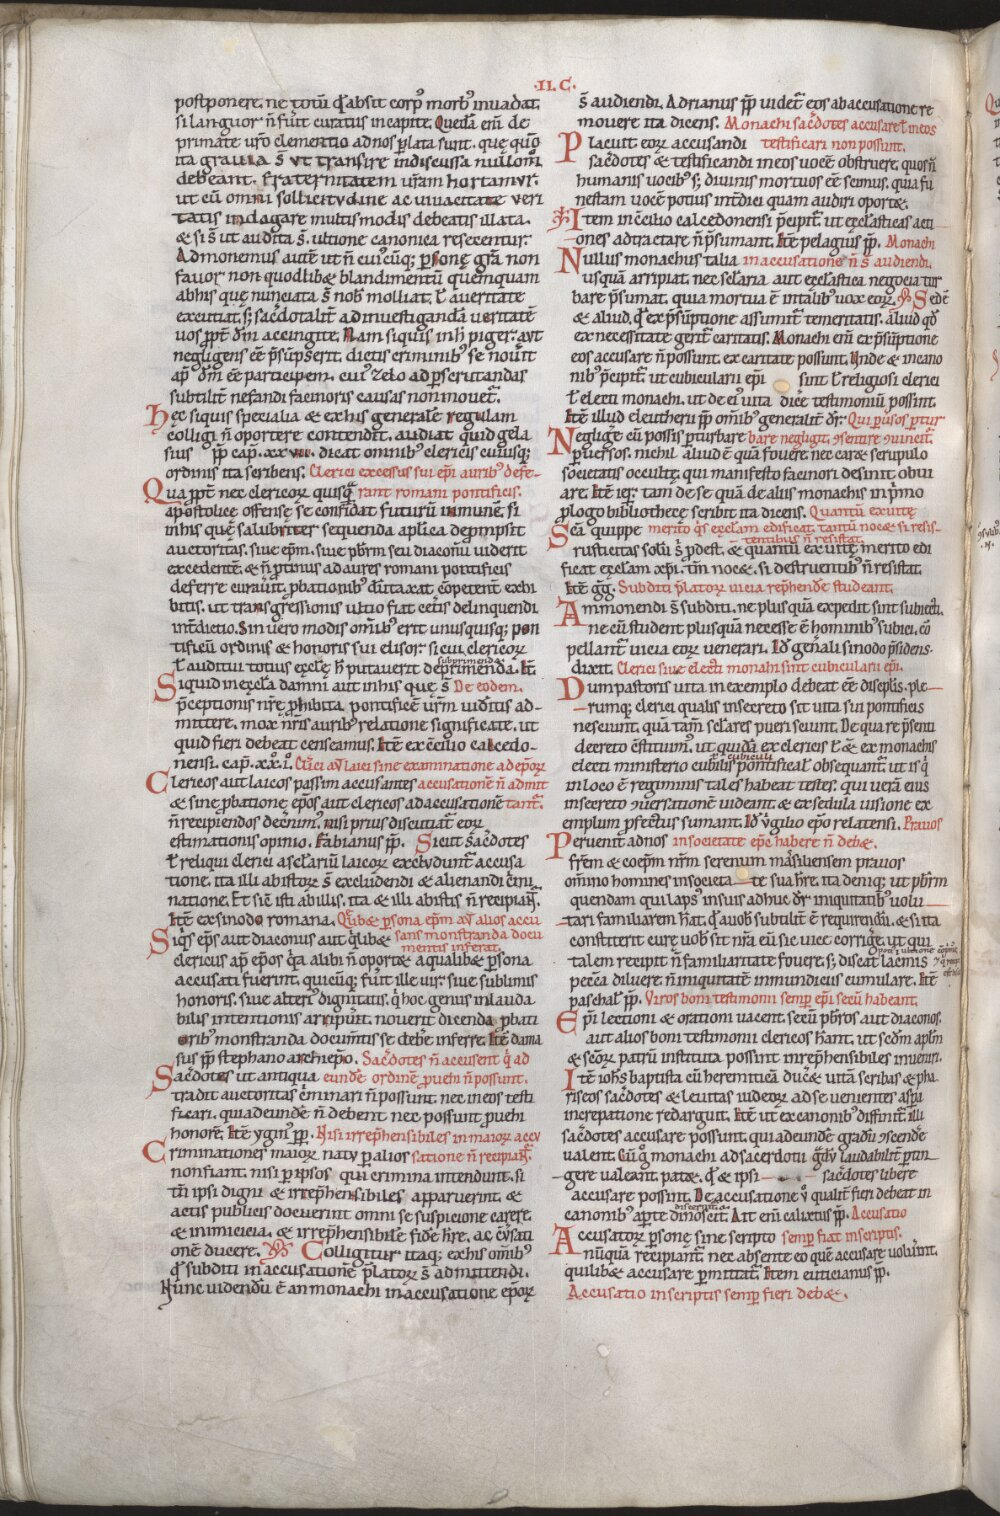 .II. C.
postponere. ne totū qđ absit corpꝰ morbꝰ inuadat.
si languor ñ fuīt curatus in capite. Quedā eni de
primate uro clementio ad nos plata sunt. que quō
ita grauia s̄ ut transire indiscussa nullom̄
debeant. fraternitatem uram hortamur.
ut cū omni sollicitudine ac uiuacitate ueri
tatis indagare multis modis debeatis illata.
& si s̄ ut audita s̄. ultione canonica resecentur.
Admonemus autē ut ñ cuicūq; persone gra non
fauor non quodlibæ blandimentū quemquam
ab his que nunciata s̄ nob̄ molliat. ł a ueritate
excutiat. s; sacdotalit ad inuestigandā ueritatē
uos ppt dm̄ accingite. Nam si quis in h piger. aut
negligens eē psupserit. dictis criminibꝰ se nouit
ap dm̄ eē participem. cuiꝰ zelo ad pscrutandas
subtilit nefandi facinoris causas non mouet.
Hec si quis specialia & ex his generalē regulam
colligi ñ oportere contenderit. audiat quid gela
sius pp cap. xxviii. dicat omnibꝰ clericis cuiusq;
ordinis ita scribens. Clerici excessus sui epi auribꝰ defe-
Qua ppt nec clericoꝝ quisq rant romani pontificis.
apostolice offense se confidat futurū inmunē. si
in his que salubriter sequenda aplica depmpsit
auctoritas. siue epm. siue pbrm seu diaconū uiderit
excedentē. & ñ ptinus ad aures romani pontificis
deferre curauit. pbationibꝰ dūtaxat cōpetent exhi
bitis. ut transgressionis ultio fiat cetis delinquendi
int̄dictio. Sin uero modis omibꝰ erit unusquisq; pon
tificū ordinis & honoris sui elisor. si cui clericoꝝ
subprimenda.
ł auditui totius ecclē h putauerit deprimenda. Itē
Siquid in eccla damni aut in his que s̄ De eodem.
pceptionis nrē phibita. pontificē urm uiditis ad-
mittere. mox nris auribꝰ relatione significate. ut
quid fieri debeat censeamus. Itē ex cilio calcedo-
nensi. cap. xx.i. Clici aut laici sine examinatione ad epoꝝ
Clericos aut laicos passim accusantes accusationē ñ admit
& sine pbatione epos aut clericos ad accusationē tant.
ñ recipiendos decnim. nisi prius discutiat eoꝝ
estimationis opinio. Fabianus pp. Sicut sacdotes
ł reliqui clerici a sclariū laicoꝝ excludunt accusa
tione. ita illi ab istoꝝ s̄ excludendi & alienandi cimi
natione. Et sic isti ab illis. ita & illi ab istis ñ recipiañ.
Itē ex sinodo romana. Qlibæ psona epm aut alios accu
Siqs eps aut diaconus aut qlibæ sans monstranda docu
mentis inferat.
clericus ap epos qa alibi ñ oportæ a qualibæ psona
accusati fuerint. quicūq; fuīt ille uir. siue sublimis
honoris. siue alteriꝰ dignitatis. q hoc genus inlauda
bilis intentionis arripuīt. nouerit dicenda pbati
onibꝰ monstranda documtis se debe inferre. Itē dama
sus pp stephano archiepo. Sacdotes ñ accusent q ad
Sacdotes ut antiqua eundē ordinē puehi ñ possunt.
tradit auctoritas ciminari ñ possunt. nec in eos testi
ficari. qui ad eundē ñ debent nec possunt puehi
honore. Itē yginꝰ pp. Nisi irrephensibiles in maioꝝ accu
Criminationes maioꝝ natu p alios satione ñ recipiañ.
non fiant. nisi p ipsos qui crimina intendunt. si
tñ ipsi digni & irrephensibiles apparuerint. &
actis publicis docuerint omni se suspicione carere.
& inimicicia. & irrephensibilē fidē hre. ac cusati
onē ducere. Colligitur itaq; ex his omibꝰ
qđ subditi in accusationē platoꝝ s̄ admittendi.
Nunc uidendū ē an monachi in accusatione epoꝝ
s̄ audiendi. Adrianus pp uidet eos ab accusatione re
mouere ita dicens. Monachi sacdotes accusare ł in eos
Placuit eoꝝ accusandi testificari non possunt.
sacdotes & testificandi in eos uocē obstruere. quos ñ
humanis uocibꝰ s; diuinis mortuos eē scimus. quia fu
nestam uocē potius int̄dici quam audiri oportæ.
Item in cilio calcedonensi pcipit. ut ecclasticas acti
ones adtractare ñ psumant. Itē pelagius pp. Monachi
Nullus monachus talia in accusatione ñ s̄ audiendi.
usquā arripiat. nec seclaria aut ecclastica negocia tur
bare psumat. quia mortua ē in talibꝰ uox eoꝝ. Sed ē
& aliud. qđ ex psuptione assumit temeritatis. aliud qđ
ex necessitate gerit caritatis. Monachi eni ex psuptione
eos accusare ñ possunt. ex caritate possunt. Unde & in cano
nibꝰ pcipit. ut cubicularii epi sint ł religiosi clerici
ł electi monachi. ut de eiꝰ uita dice testimoniū possint.
Itē illud eleutherii pp omibꝰ generalit dr. Qui puersos ptur
Negligē cū possis pturbare bare negligit. ꝯsentire ꝯuincit.
puersos. nichil aliud ē quā fouere. nec caræ scrupulo
societatis occultę. qui manifesto facinori desinit obui
are. Itē ier. tam de se quā de aliis monachis in pmo
plogo bibliothece scribit ita dicens. Quantū ex uite
Sca quippe merito qs ecclam edificat. tantū nocæ si resis-
tentibus ñ resistat.
rusticitas solū s pdest. & quantū ex uite merito edi
ficat ecclam xpi. tm nocæ. si destruentibꝰ ñ resistat.
Itē gg. Subditi platoꝝ uicia rephendē studeant.
Ammonendi s̄ subditi. ne plus quā expedit sint subiecti.
Ne cū student plusquā necesse ē hominibꝰ subici. cō
pellant uicia eoꝝ uenerari. Id genali sinodo psidens
dixit. Clerici siue electi monachi sint cubicularii epi.
Dum pastoris uita in exemplo debeat eē discplis. ple
rumq; clerici qualis in secreto sit uita sui pontificis
nesciunt. quā tam sclares pueri sciunt. De qua re psenti
decreto cstituim. ut quidā ex clericis ł & ex monachis
cubiculi
electi ministerio cubilis pontificał obsequant. ut is q
in loco ē regiminis tales habeat testes. qui uerā eius
in secreto ꝯuersationē uideant. & ex sedula uisione ex
emplum pfectus sumant. Id ugilio epo relatensi. Prauos
Peruenit ad nos in societate epc habere ñ debæ.
frem & coepm nrm serenum masiliensem prauos
omino homines in societate sua hre. ita deniq; ut pbrm
quendam qui lapsꝰ in suis adhuc dr iniquitatibꝰ uolu
tari familiarem hat. qđ a uob subtilit ē requirendū. & si ita
constiterit cure uob sit nra eū sic uice corrigē. ut qui
talem recipit ñ familiaritate fouere. s; discat lacrimis
peccā diluere. ñ iniquitatē inmundiciis cumulare. Itē
paschał pp. Viros boni testimonii semp epi secū habeant.
Epi lectioni & orationi uacent. secū pbros aut diaconos.
aut alios boni testimonii clericos hant. ut scdm aplm
& scoꝝ patrū instituta possint inrephensibiles inueniri.
Itē iohs baptista cū heremiticā ducæ uitā scribas & pha
riseos sacdotes & leuitas iudeoꝝ ad se uenientes aspi
increpatione redarguit. Itē ut ex canonibꝰ diffinit. illi
sacdotes accusare possunt. qui ad eundē gradū ꝯscendē
ualent. Cū q monachi ad sacerdotii gdū laudabilit ptin
gere ualeant. patæ. qđ & ipsi sacdotes libere
accusare possint. De accusatione u qualit fieri debeat in
canonibꝰ apte dinoscit. Ait eni calixtus pp. Accusatio
Accusatoꝝ psone sine scripto semp fiat in scriptis.
nūquā recipiant. nec absente eo quē accusare uoluīnt.
quilibæ accusare pmittat. Item euticianus pp.
Accusatio in scriptis semp fieri debæ.